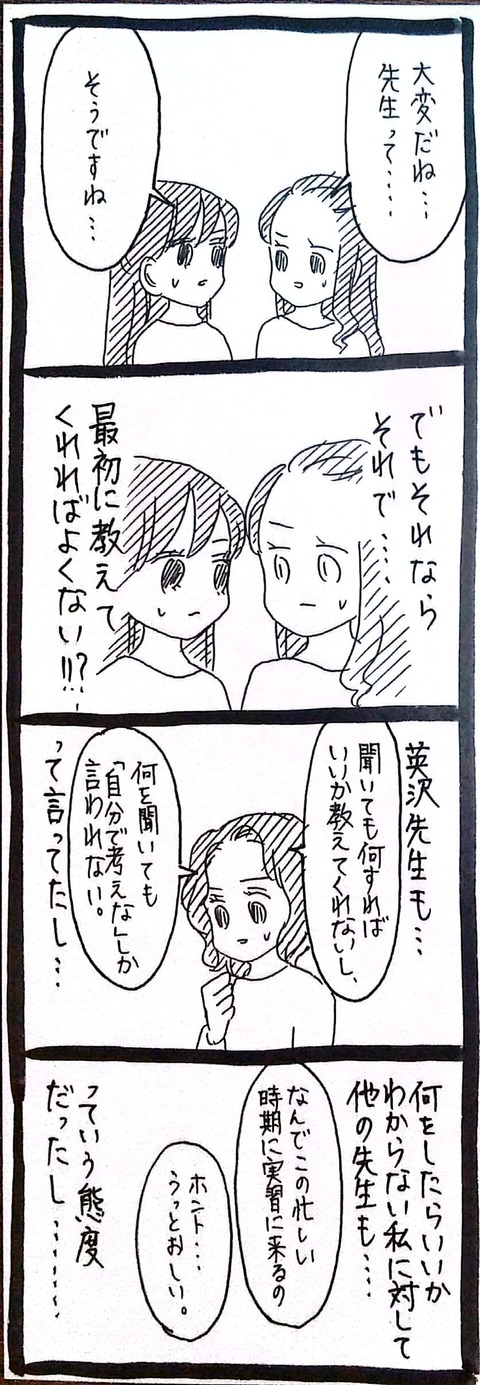 大変だね…
先生って….
そうですね…
でもそれなら
それで….
最初に教えて
くれればよくない!!?
英沢先生も…
聞いても何すれば
いいか教えてくれないし、
何を聞いても
「自分で考えな」しか
言われない。
って言ってたし…
何をしたらいいか
わからない私に対して
他の先生も….
なんでこの忙しい
時期に実習に来るの
ホント…
うっとおしい。
っていう態度
だったし………